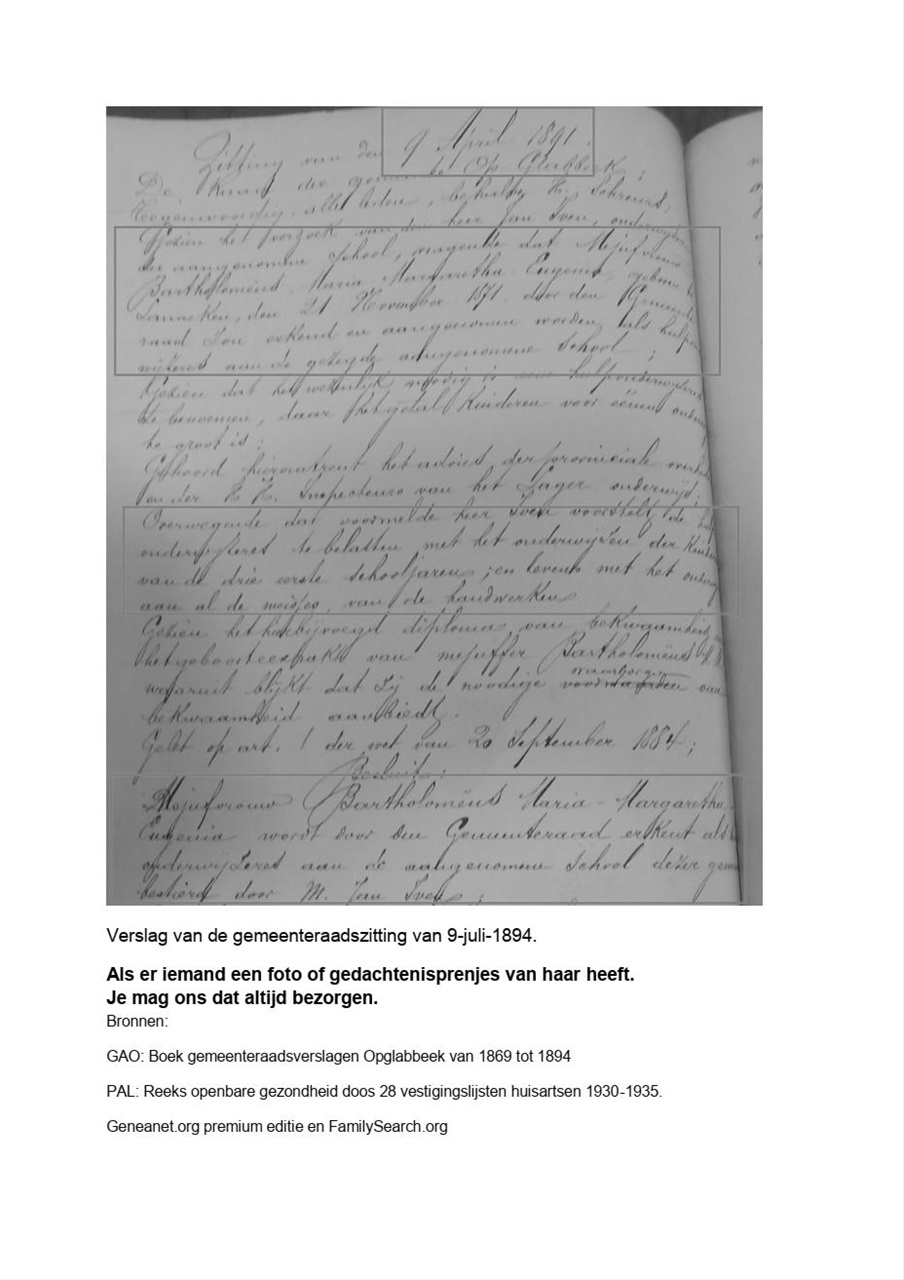 Zitting van den 9 April 1891.
De Raad der gemeente Op Glabbeek;
Tegenwoordig: alle leden, behalve H. Schreurs,
Gezien het verzoek van den heer Jan Sven, onderwijzer
der aangenomene School, vragende dat Mejufvrouw
Bartholomëns Maria Margaretha Eugenia, geboren te
Lanaeken, den 21 November 1871, door den Gemeente
raad zou erkend en aangenomen worden, als hulponder
wijzeres aan de gezegde aangenomene School;
Gezien dat het wezenlijk noodig is eene hulponderwijzeres
te benoemen, daar het getal Kinderen voor éénen onder
te groot is;
Gehoord hieromtrent het advies der provinciale
en der H. H. Inspecteurs van het Lager onderwijs;
Overwegende dat voormelde heer Sven voorstelt, de hulp
onderwijzeres te belasten met het onderwijzen der Kinderen
van de drie eerste schooljaren; en tevens met het
aan al de meisjes, van de handwerken
Gezien het hierbijgevoegd diploma van bekwaamheid,
het geboorteextrakt van mejuffer Bartholomëns
waaruit blijkt dat zij de noodige waarborgen van
bekwaamheid aanbiedt.
Gelet op art. 1 der wet van 20 September 1884;
Besluit:
Mejufvrouw Bartholomëns Maria-Margaretha
Eugenia wordt door den Gemeenteraad erkent als
onderwijzeres aan de aangenomene School dezer
bestierd door M. Jan Sven;
Verslag van de gemeenteraadszitting van 9-juli-1894.
Als er iemand een foto of gedachtenisprenjes van haar heeft.
Je mag ons dat altijd bezorgen.
Bronnen:
GAO: Boek gemeenteraadsverslagen Opglabbeek van 1869 tot 1894
PAL: Reeks openbare gezondheid doos 28 vestigingslijsten huisartsen 1930-1935.
Geneanet.org premium editie en FamilySearch.org